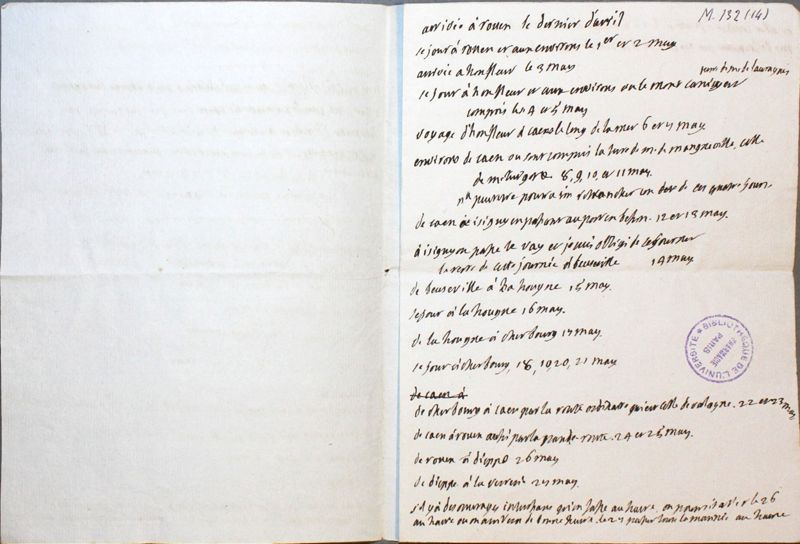 M. 132 (14)
arrivée à rouen le dernier d'avril
sejour à rouen et aux environs le 1er et 2 may
arrivée a honfleur le 3 may
sejour à honfleur et aux environs ou le mont
compris les 4 et 5 may
voyage d'honfleur à caen le long de la mer 6 et 7 may
environs de caen ou sont compris la terre de m. de celle
de m. turgot 8, 9, 10, et 11 may.
peutetre pourra t'on retrancher un des de ces quatre jours
de caen à isigny en passant au port en bessin. 12 et 13 may.
à isigny on passe le vay et je suis obligé de sejourner
le reste de cette journée à beuseville 14 may
de beuseville à la hougue 15 may.
sejour à la hougue 16 may.
de la hougue à cherbourg 17 may.
sejour à cherbourg, 18, 19 20, 21 may
de caen à
de cherbourg à caen par la route ordinaire qui est celle de valogne. 22 et 23 may
de caen à rouen aussi par la grande route. 24 et 25 may.
de rouen à dieppe 26 may
de dieppe à la 27 may.
s'il y a des ouvrages interessans qu'on fasse au havre, on pourrait aller le 26
au havre ou on arrivera de bonne heure. le 27 passer toute la matinée au havre
BIBLIOTHEQUE DE L'UNIVERSITE
PARIS